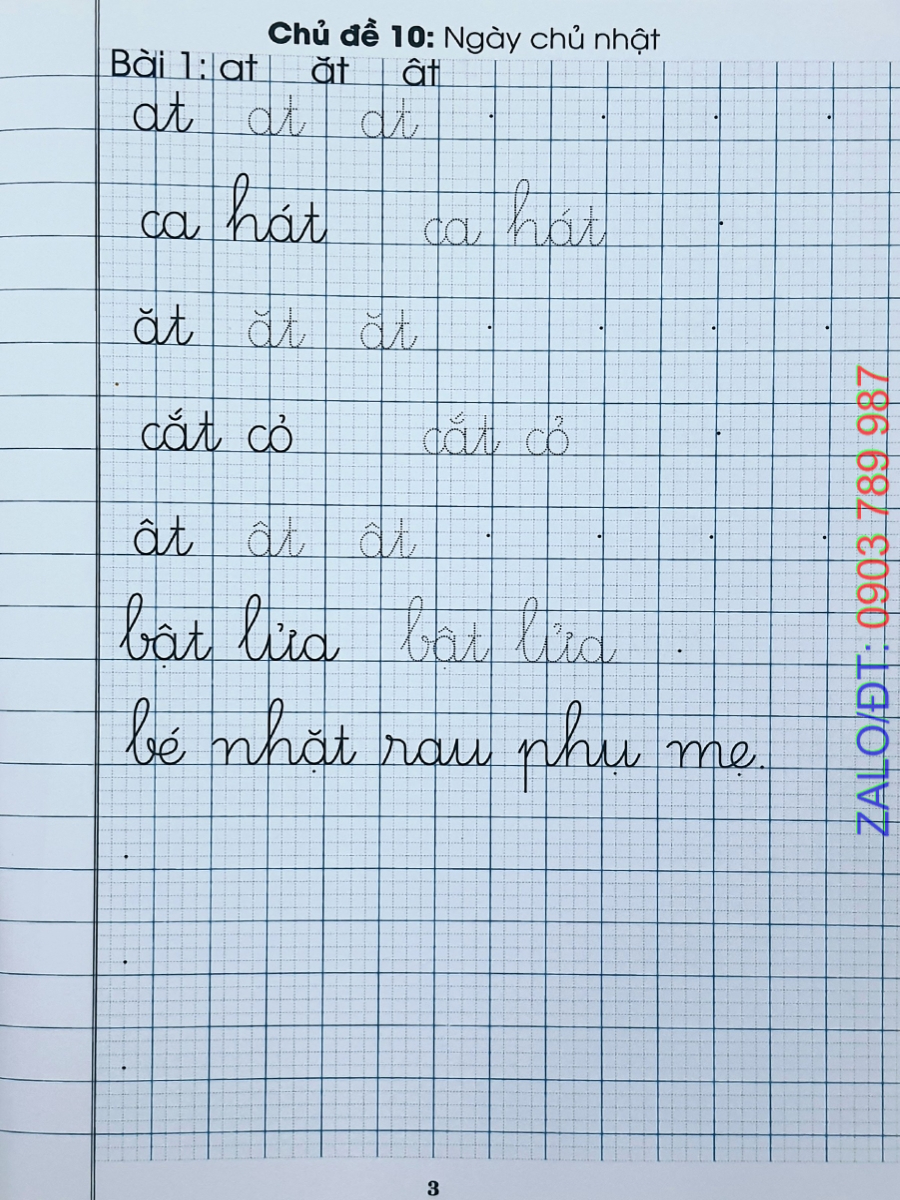 Chủ đề 10: Ngày chủ nhật
Bài 1: at ăt ât
at at at
ca hát ca hát
ăt ăt ăt
cắt cỏ cắt cỏ
ât ât ât
bật lửa bật lửa
bé nhặt rau phụ mẹ.
ZALO/ĐT: 0903 789 987
3